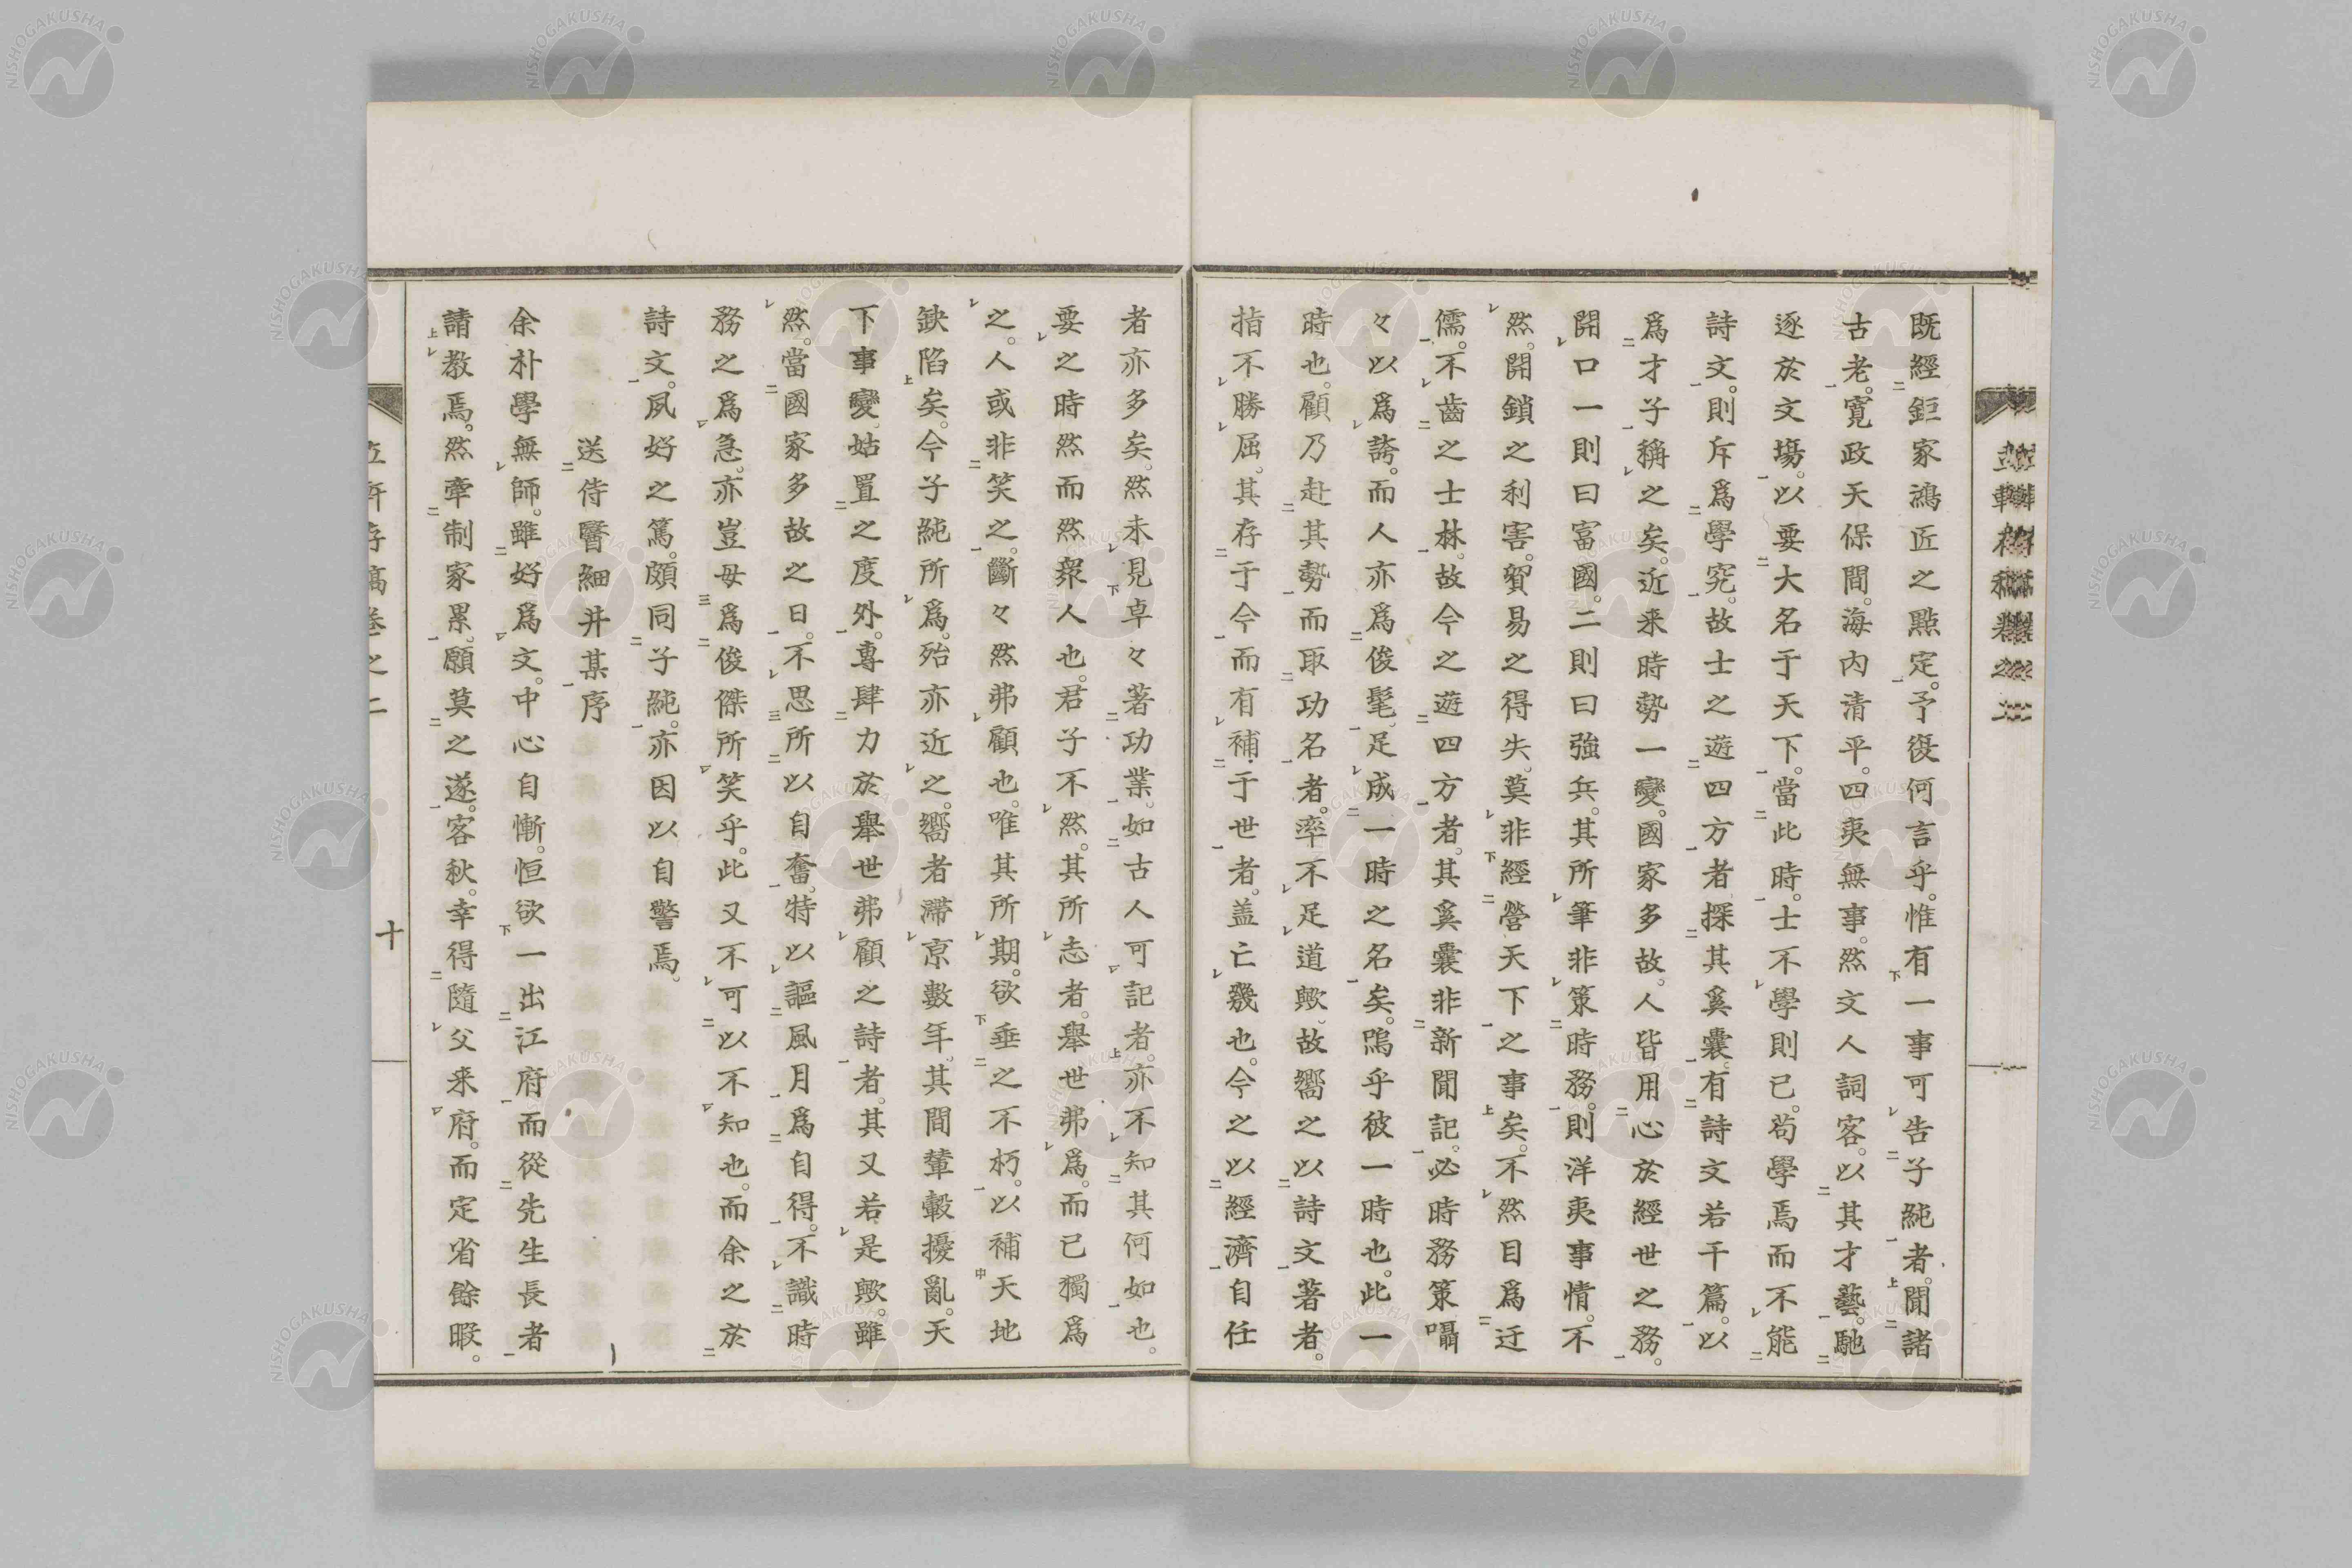 既經鉅家鴻匠之點定。予復何言乎。惟有一事可告子純者。聞諸
古老。寛政天保間。海内清平。四夷無事。然文人詞客。以其才藝。馳
逐於文場。以要大名于天下。當此時。士不學則已。苟學焉而不能
詩文。則斥爲學究。故士之遊四方者探其奚囊。有詩文若干篇。以
爲才子稱之矣。近来時勢一變。國家多故。人皆用心於經世之務。
開口一則曰富國。二則曰強兵。其所筆非策時務。則洋夷事情。不
然。開鎖之利害。貿易之得失。莫非經營天下之事矣。不然目爲迂
儒。不齒之士林。故今之遊四方者。其奚囊非新聞記。必時務策囁
々以爲誇。而人亦爲俊髦。足成一時之名矣。嗚乎彼一時也。此一
時也。顧乃赴其勢而取功名者。率不足道歟。故嚮之以詩文著者。
指不勝屈。其存于今而有補于世者。盖亡幾也。今之以經濟自任
者亦多矣。然未見卓々著功業。如古人可記者。亦不知其何如也。
要之時然而然衆人也。君子不然。其所志者。舉世弗爲。而已獨爲
之。人或非笑之。斷々然弗顧也。唯其所期。欲垂之不朽。以補天地
缺陷矣。今子純所爲。殆亦近之。嚮者滯京數年。其間輦轂擾亂。天
下事變。姑置之度外。專肆力於舉世弗顧之詩者。其又若是歟。雖
然。當國家多故之日。不思所以自奮。特以謳風月爲自得。不識時
務之爲急。亦豈毋爲俊傑所笑乎。此又不可以不知也。而余之於
詩文。夙好之篤。頗同子純。亦因以自警焉。
送侍醫細井某序
余朴學無師。雖好爲文。中心自慚。恒欲一出江府而從先生長者
請教焉。然牽制家累。願莫之遂。客秋。幸得隨父来府。而定省餘暇。
十